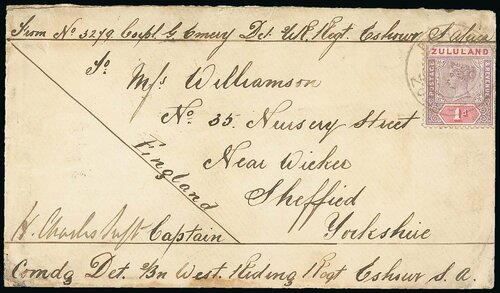 From No 3279 Corpl G. Emery Det. W.R. Regt Eshowe S. Africa
ZULULAND
POSTAGE
REVENUE
1d
To
Mrs Williamson
No. 35 Nursery Street
Near Wicker
Sheffied
Yorkshire
England
H. Charles Captain
Comdg Det. 2/Bn West. Riding Regt Eshowe S.A.